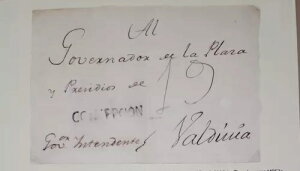 Al
Governador de la Plaza
y Presidios de
19
CONCEPCION
Gov.or Intendente
Valdivia